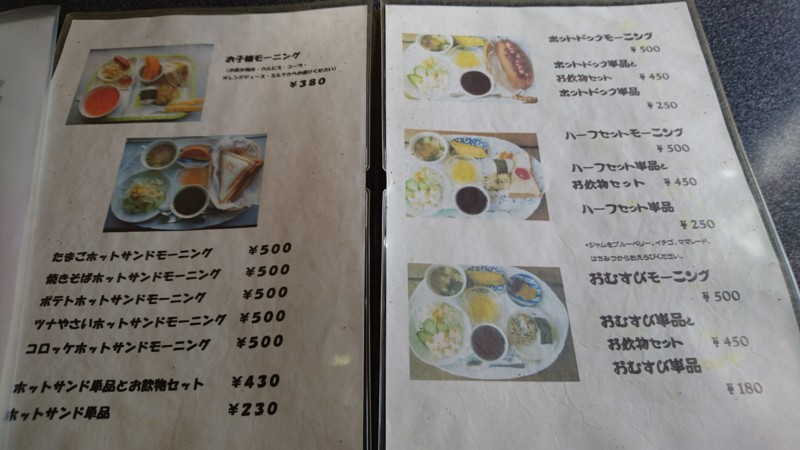 お子様モーニング
(お飲み物は・カルピス・コーラ・
オレンジジュース・ミルクからお選びください)
¥380
たまごホットサンドモーニング ¥500
焼きそばホットサンドモーニング ¥500
ポテトホットサンドモーニング ¥500
ツナやさいホットサンドモーニング ¥500
コロッケホットサンドモーニング ¥500
ホットサンド単品とお飲物セット ¥430
ホットサンド単品 ¥230
ホットドックモーニング
¥500
ホットドック単品と
お飲物セット ¥450
ホットドック単品
¥250
ハーフセットモーニング
¥500
ハーフセット単品と
お飲物セット ¥450
ハーフセット単品
¥250
*ジャムをブルーベリー、イチゴ、ママレード、
はちみつからおえらびください。
おむすびモーニング
¥500
おむすび単品と
お飲物セット ¥450
おむすび単品
¥180